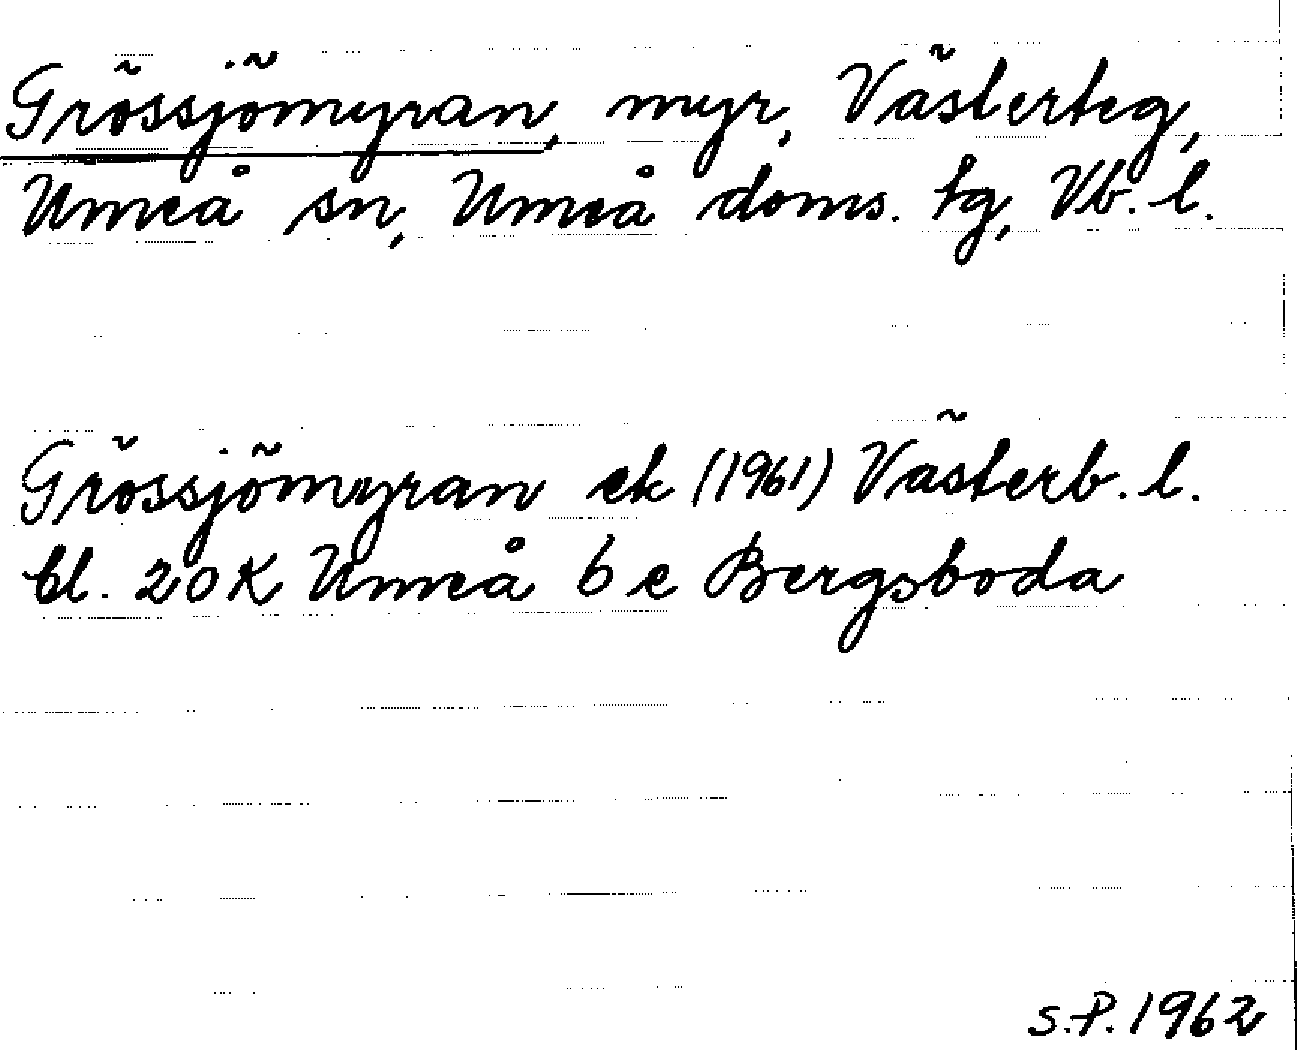 Grössjömyran, myr, Västerteg,
Umeå sn, Umeå doms. tg, Vb. l.
Grössjömyran ek (1961) Västerb. l.
bl. 20K Umeå 6 e Bergsboda
S.P. 1962